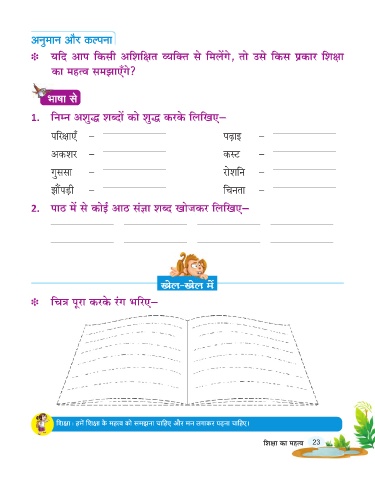 अनुमान और कल्पना
❉ यदि आप किसी अशिक्षित व्यक्ति से मिलेंगे, तो उसे किस प्रकार शिक्षा
का महत्व समझाएँगे?
भाषा से
1. निम्न अशुद्ध शब्दों को शुद्ध करके लिखिए–
परिक्षाएँ – पढ़ाइ –
अकशर – कस्ट –
गुससा – रोशनि –
झौंपड़ी – चिनता –
2. पाठ में से कोई आठ संज्ञा शब्द खोजकर लिखिए–
खेल-खेल में
❉ चित्र पूरा करके रंग भरिए–
शिक्षा : हमें शिक्षा के महत्व को समझना चाहिए और मन लगाकर पढ़ना चाहिए।
शिक्षा का महत्व 23